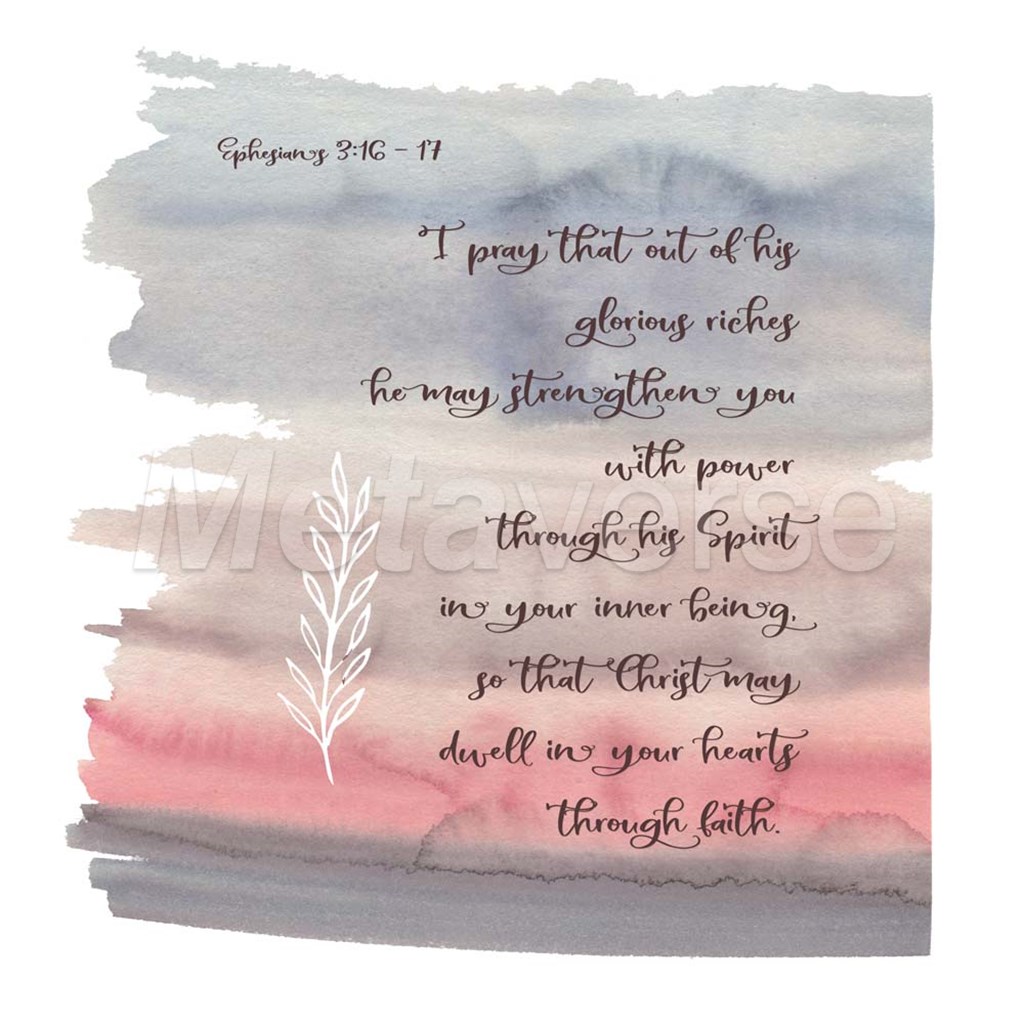 Ephesians 3:16 – 17
I pray that out of his
glorious riches
he may strengthen you
with power
through his Spirit
in your inner being,
so that Christ may
dwell in your hearts
through faith.
Metaverse